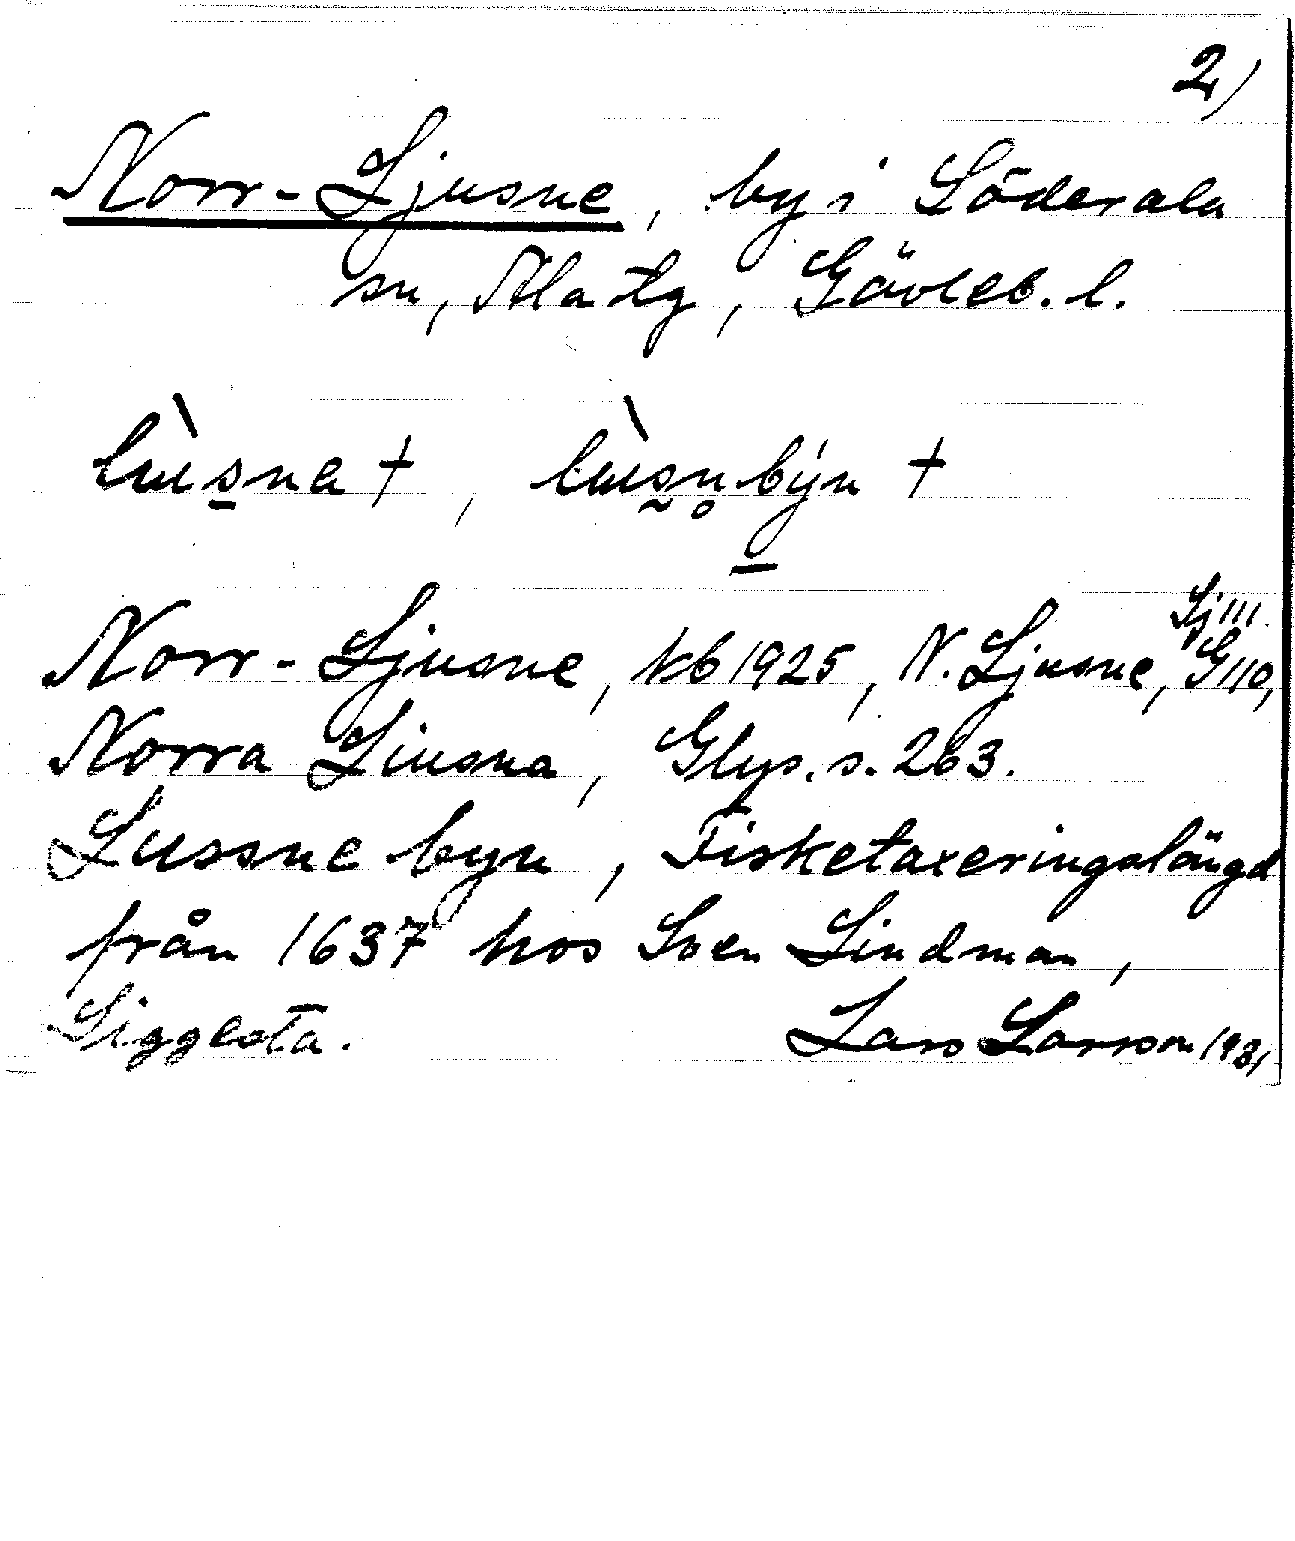 2)
Norr-Ljusne, by i Söderala
sn, Ala tg, Gävleb. l.
Norr-Ljusne, kb 1925, N. Ljusne, Lj 111. G 110,
Norra Liusna, Glys. s. 263.
Lussne byn, Fisketaxeringslängd
från 1637 hos Sven Lindman,
Siggesta. Lars Larsson 1931